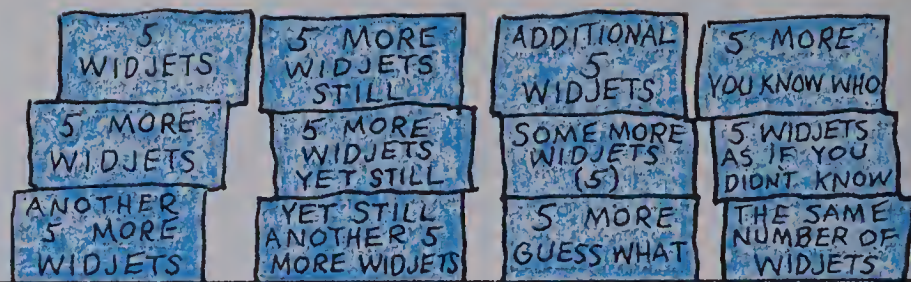 5
WIDJETS
5 MORE
WIDJETS
ANOTHER
5 MORE
WIDJETS
5 MORE
WIDJETS
STILL
5 MORE
WIDJETS
YET STILL
YET STILL
ANOTHER 5
MORE WIDJETS
ADDITIONAL
5
WIDJETS
SOME MORE
WIDJETS
(5)
5 MORE
GUESS WHAT
5 MORE
YOU KNOW WHO
5 WIDJETS
AS IF YOU
DIDNT KNOW
THE SAME
NUMBER OF
WIDJETS